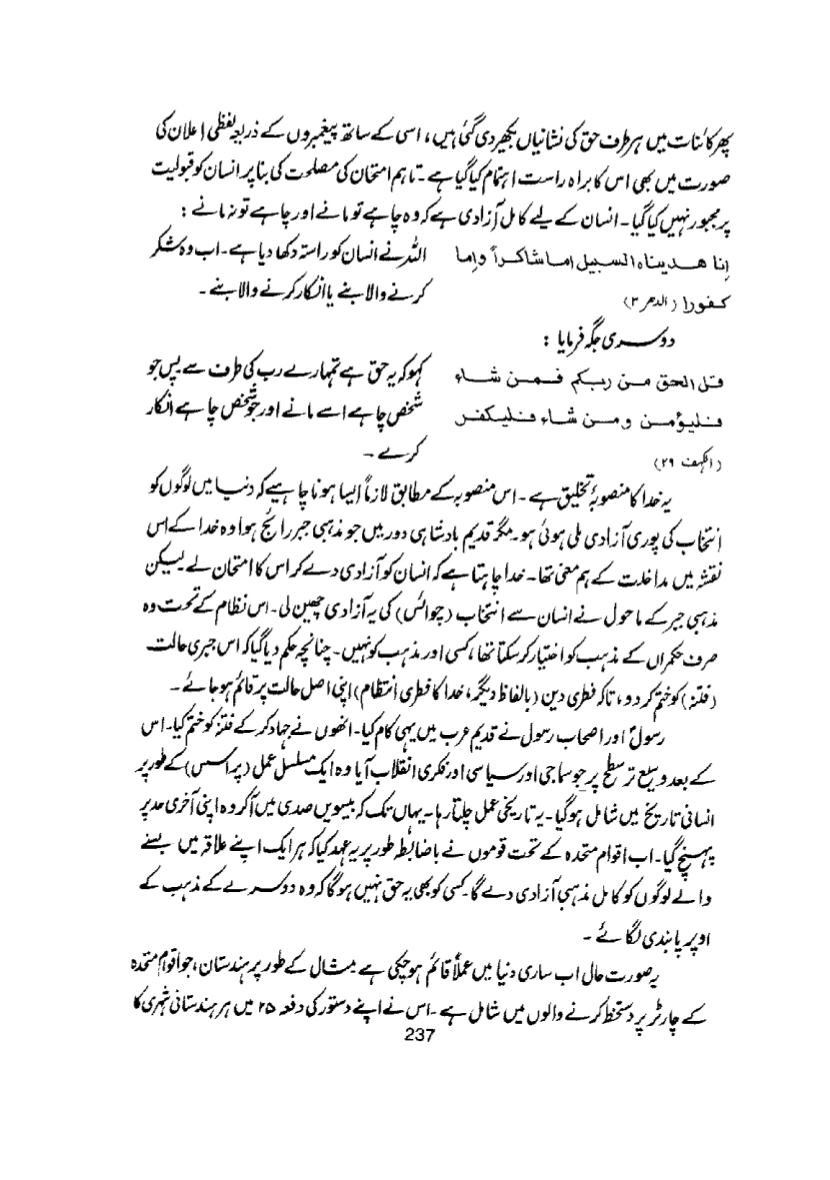 پھر کائنات میں ہر طرف حق کی نشانیاں بکھیر دی گئی ہیں، اسی کے ساتھ پیغمبروں کے ذریعہ لفظی اعلان کی
صورت میں بھی اس کا براہ راست اہتمام کیا گیا ہے۔ تاہم امتحان کی مصلحت کی بنا پر انسان کو قبولیت
پر مجبور نہیں کیا گیا۔ انسان کے لیے کامل آزادی ہے کہ وہ چاہے تو مانے اور چاہے تو نہ مانے :
إنا هديناه السبيل إما شاكراً وإما
كفورا (الدھر ۳)
اللہ نے انسان کو راستہ دکھا دیا ہے۔ اب وہ شکر
کرنے والا بنے یا انکار کرنے والا بنے۔
دوسری جگہ فرمایا :
قل الحق من ربكم فمن شاء
فليؤمن ومن شاء فليكفر
(الکہف ۲۹)
کہو کہ یہ حق ہے تمہارے رب کی طرف سے پس جو
شخص چاہے اسے مانے اور جو شخص چاہے انکار
کرے۔
یہ خدا کا منصوبۂ تخلیق ہے۔ اس منصوبہ کے مطابق لازماً ایسا ہونا چاہیے کہ دنیا میں لوگوں کو
انتخاب کی پوری آزادی ملی ہوئی ہو۔ مگر قدیم بادشاہی دور میں جو مذہبی جبر رائج ہوا وہ خدا کے اس
نقشہ میں مداخلت کے ہم معنی تھا۔ خدا چاہتا ہے کہ انسان کو آزادی دے کر اس کا امتحان لے لیکن
مذہبی جبر کے ماحول نے انسان سے انتخاب (چوائس) کی یہ آزادی چھین لی۔ اس نظام کے تحت وہ
صرف حکمراں کے مذہب کو اختیار کر سکتا تھا، کسی اور مذہب کو نہیں۔ چنانچہ حکم دیا گیا کہ اس جبری حالت
(فتنہ) کو ختم کر دو، تاکہ فطری دین (بالفاظ دیگر، خدا کا فطری انتظام) اپنی اصل حالت پر قائم ہو جائے۔
رسولؐ اور اصحاب رسول نے قدیم عرب میں یہی کام کیا۔ انھوں نے جہاد کر کے فتنہ کو ختم کیا۔ اس
کے بعد وسیع تر سطح پر جو سماجی اور سیاسی اور فکری انقلاب آیا وہ ایک مسلسل عمل (پراسس) کے طور پر
انسانی تاریخ میں شامل ہو گیا۔ یہ تاریخی عمل چلتا رہا۔ یہاں تک کہ بیسویں صدی میں آکر وہ اپنی آخری حد پر
پہنچ گیا۔ اب اقوام متحدہ کے تحت قوموں نے باضابطہ طور پر یہ عہد کیا کہ ہر ایک اپنے علاقہ میں بسنے
والے لوگوں کو کامل مذہبی آزادی دے گا۔ کسی کو بھی یہ حق نہیں ہوگا کہ وہ دوسرے کے مذہب کے
اوپر پابندی لگائے۔
یہ صورت حال اب ساری دنیا میں عملاً قائم ہو چکی ہے مثال کے طور پر ہندستان، جو اقوام متحدہ
کے چارٹر پر دستخط کرنے والوں میں شامل ہے۔ اس نے اپنے دستور کی دفعہ ۲۵ میں ہر ہندستانی شہری کا
237